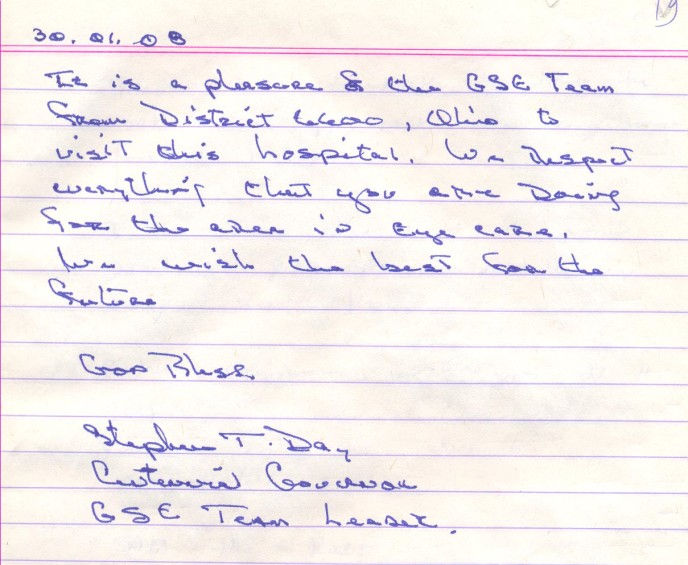 19
30.01.08
It is a pleasure for the GSE Team
from District 6600, Ohio to
visit this hospital. We respect
everything that you are Doing
for the area in Eye care.
We wish the best for the
future
God Bless.
Stephen T. Day
Centennial Governor
GSE Team Leader.